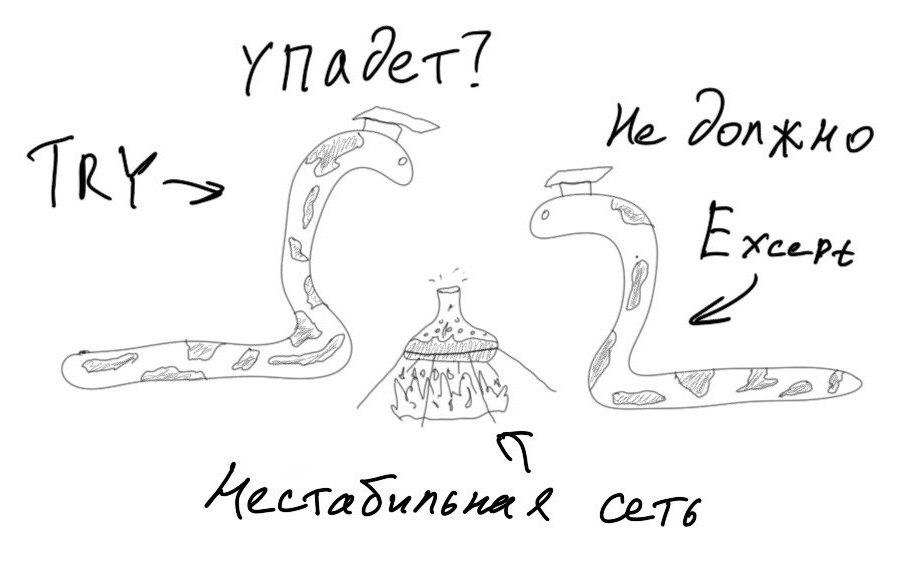 упадет?
Не должно
TRY
Except
Нестабильная сеть